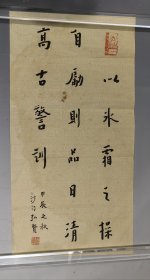 以冰霜之操
自励則品日清
高古警训
甲辰之秋